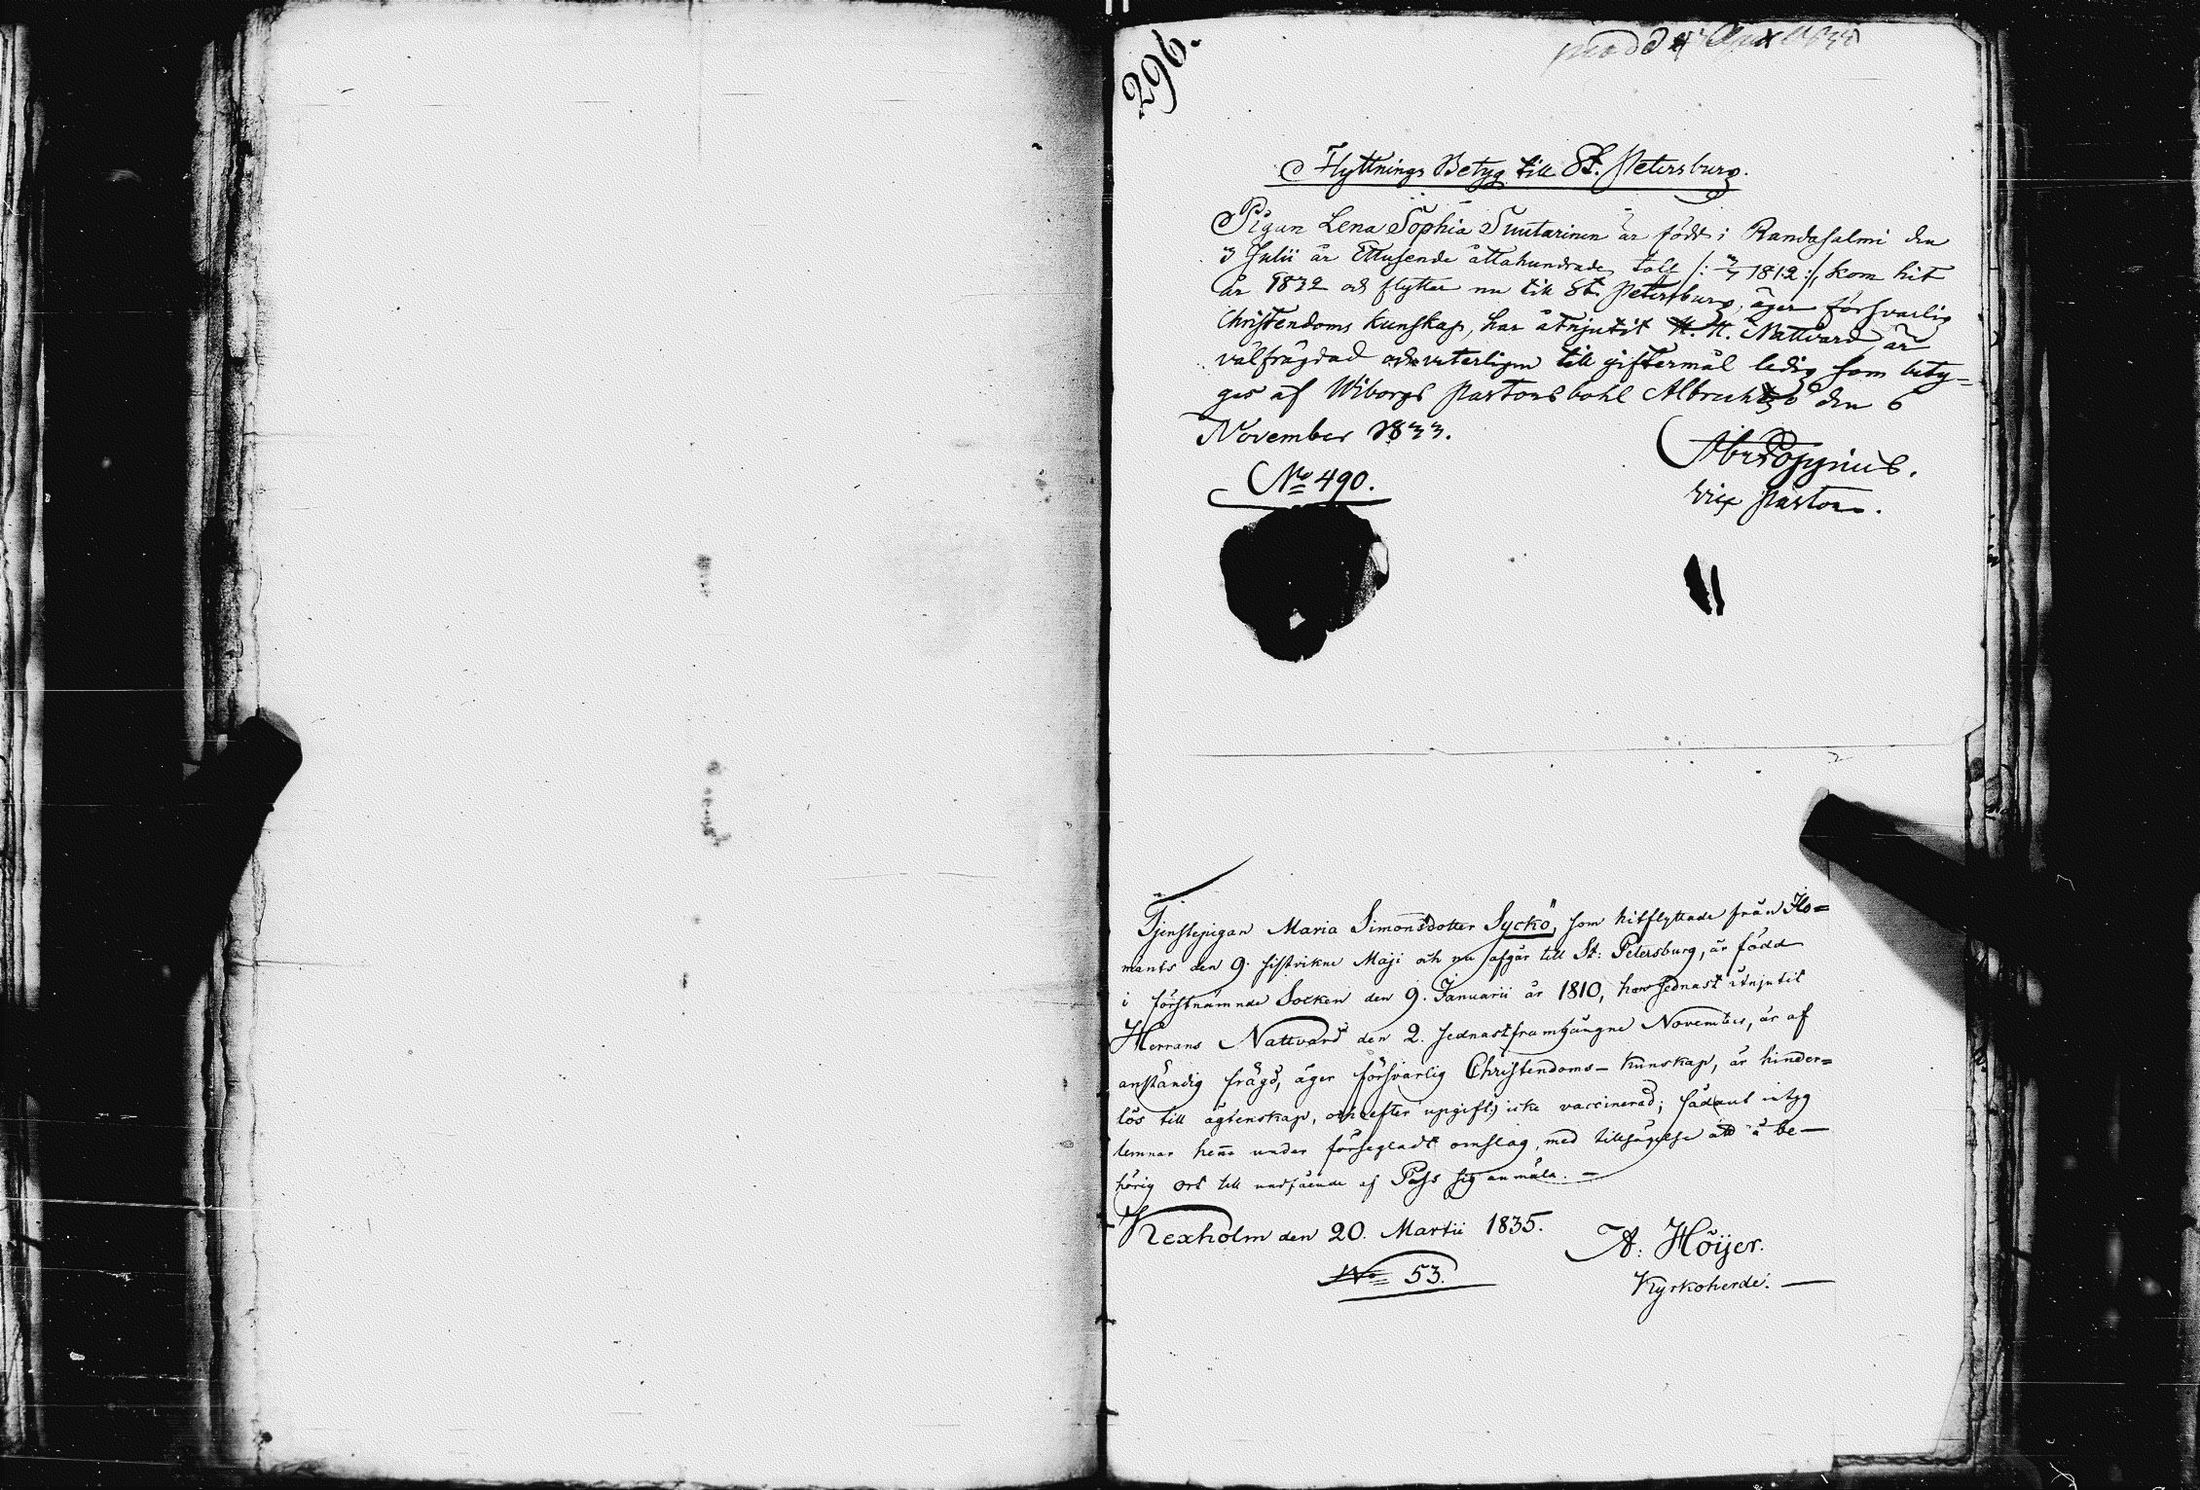 296.
Flyttnings Betyg till St. Petersburg.
Pigan Lena Sophia Suutarinen är född i Randasalmi den
3 Julii år Ettusende åttahundrade tolf /: 3/7 1812 :/, kom hit
år 1832 och flyttar nu till St. Petersburg, äger försvarlig
Christendoms kunskap, har åtnjutit H. H. Nattvard, är
välfrägdad och veterligen till giftermål ledig som bety=
gas af Wiborgs Pastorsbohl Albrechtsb den 6
November 1833.
No 490.
Vice Pastor.
Tjenstepigan Maria Simonsdotter Syckö, som hitflyttade från Ilo=
mants den 9. sistvikne Maji och nu afgår till St: Petersburg, är född
i förstnämnde Socken den 9. Januarii år 1810, har sednast åtnjutit
Herrans Nattvard den 2. sednastframgångne November, är af
anständig frägd, äger försvarlig Christendoms-kunskap, är hinder=
lös till ägtenskap, och efter upgift, icke vaccinerad; sådant intyg
lemnas henne under försegladt omslag, med tillsägelse att å be-
hörig ort till undfående af Pass sig anmäla. -
Kexholm den 20. Martii 1835.
A: Höijer.
No 53.
Kyrkoherde.